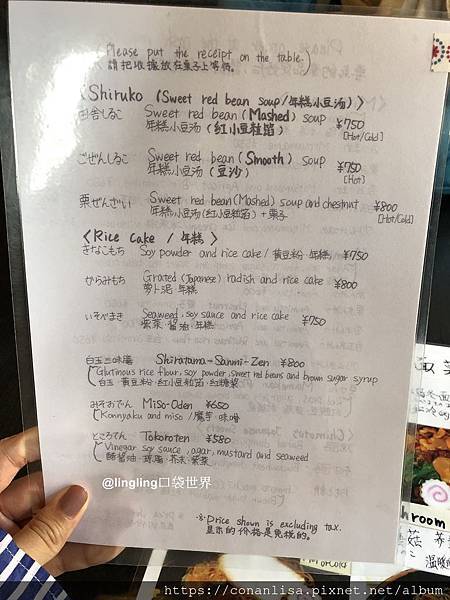 (Please put the receipt on the table.)
請把收據放在桌子上等候。
〈Shiruko (Sweet red bean soup/年糕小豆汤)〉
田舎しるこ Sweet red bean (Mashed) soup ¥750
年糕小豆汤 (紅小豆粒餡) [Hot/Cold]
ごぜんしるこ Sweet red bean (Smooth) soup ¥750
年糕小豆汤 (豆沙) [Hot]
栗ぜんざい Sweet red bean (Mashed) soup and chestnut ¥800
年糕小豆汤(紅小豆粒餡)+栗子 [Hot/Cold]
〈Rice Cake / 年糕〉
きなこもち Soy powder and rice cake / 黃豆粉·年糕 ¥750
からみもち Grated (Japanese) radish and rice cake ¥800
萝卜泥·年糕
いそべまき Seaweed, soy sauce and rice cake ¥750
紫菜·醤油·年糕
白玉三味膳 Shiratama-Sanmi-Zen ¥800
(Glutinous rice flour, soy powder, sweet red beans and brown sugar syrup
白玉·黃豆粉·紅小豆粒餡·紅糖漿
みそおでん Miso-Oden ¥650
(Konnyaku and miso / 魔芋·味噌
ところてん Tokoroten ¥580
(Vinegar soy sauce, agar, mustard and seaweed
醋醤油·琼脂·芥末·紫菜
@lingling口袋世界
※Price shown is excluding tax.
显示的价格是免税的。
hroom
菇
温暖
https://conanlisa.pixnet.net/album